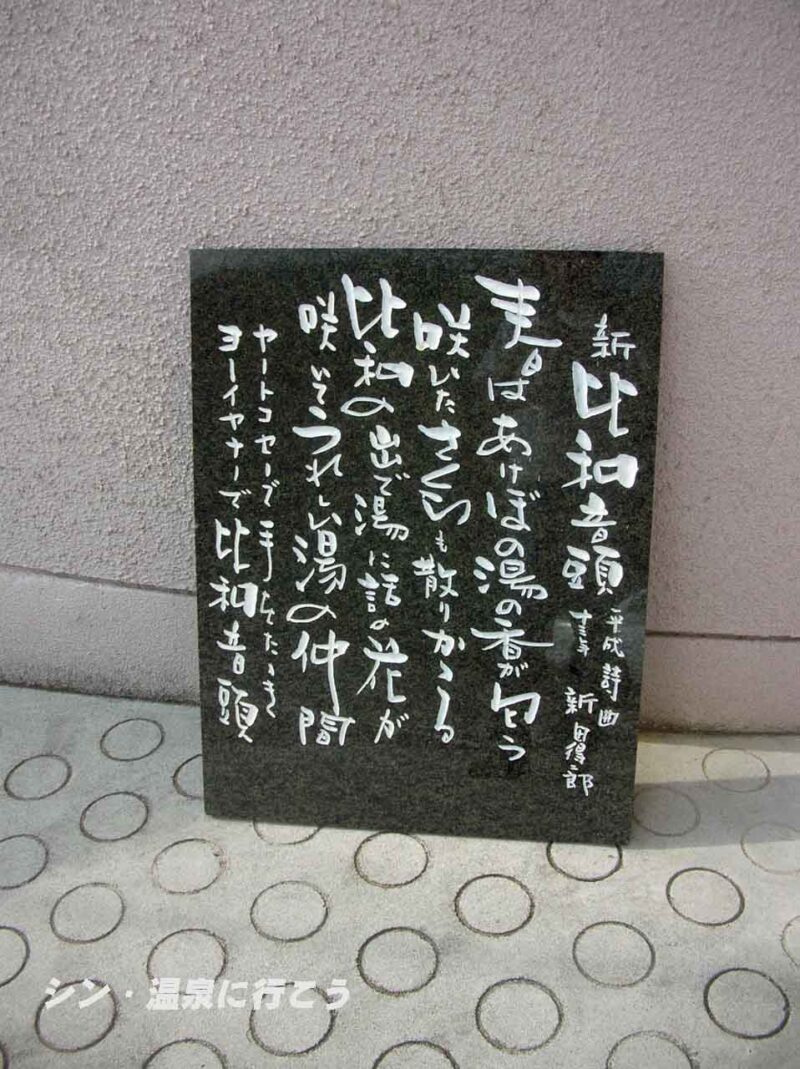 新 比和音頭
平成 詩曲
十三年 新田得二郎
春はあけぼの湯の香が匂う
咲いたさくらも散りかゝる
比和の出で湯に話の花が
咲いてうれしい湯の仲間
ヤートコセーデ手をたゝき
ヨーイヤナーで比和音頭
シン・温泉に行こう